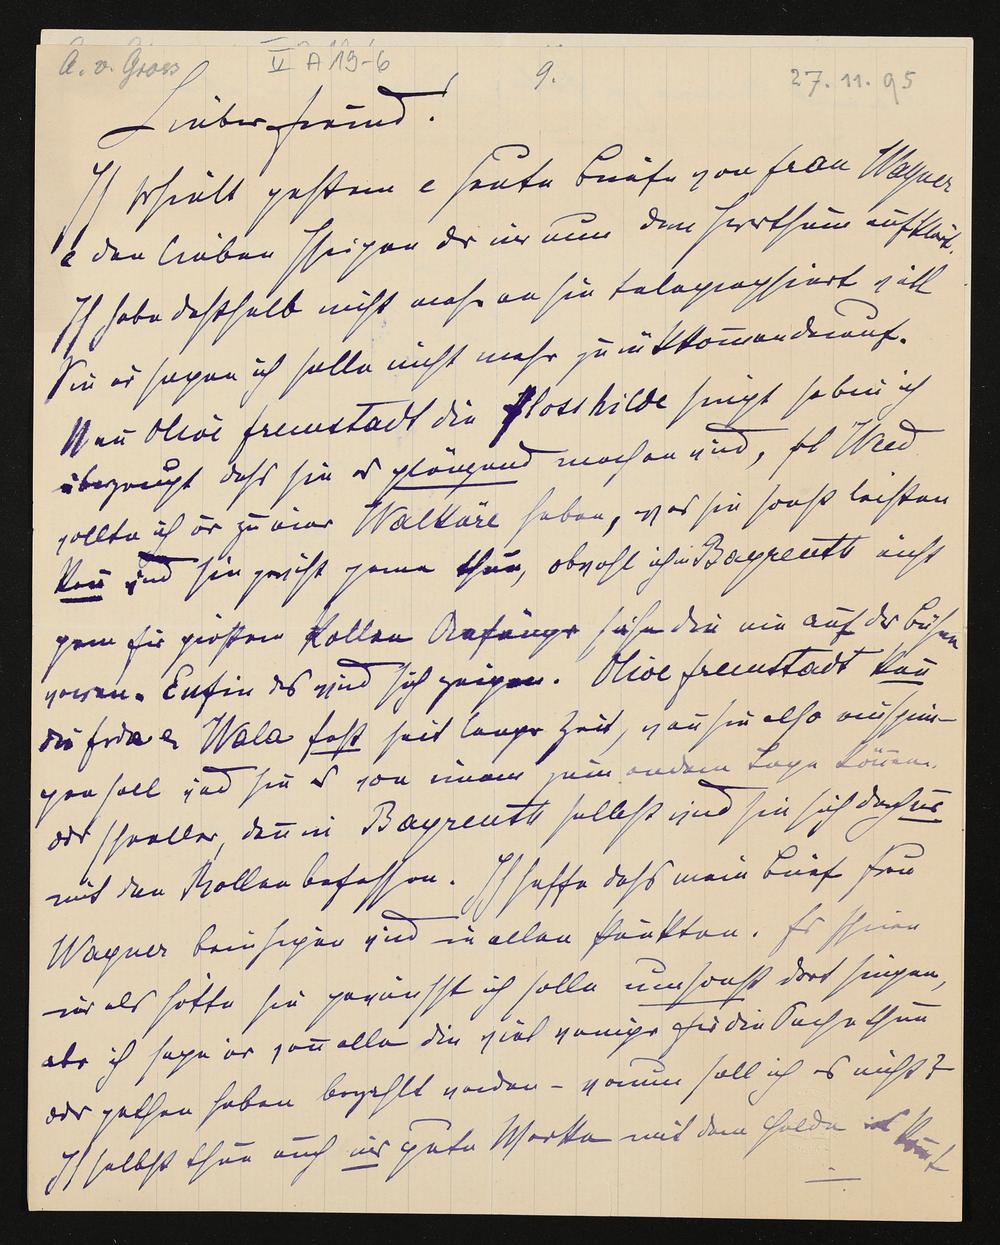 A. v. Gross V A 19-6 9. 27.11.95
Lieber Freund!
Ich erhielt gestern e heute Briefe von Frau Wagner
e den lieben Ihrigen der mir nun den Irrthum aufklärt.
Ich habe desshalb nicht mehr an sie telegraphiert weil
Sie es sagen ich solle nicht mehr zurückkommen darauf.
Wenn Olive Fremstadt die Flosshilde singt so bin ich
überzeugt dass sie es glänzend machen wird,
wollte ich ihr zu einer Walküre haben, was sie sonst leisten
kann wird sie gewiss gerne thun, obwohl ich in Bayreuth nicht
gern für grössere Rollen Anfänger sehe die nie auf der Bühne
waren. Enfin das wird sich zeigen. Olive Fremstadt kann
die Fricka e Wala fast seit langer Zeit, wenn sie also einsprin-
gen soll wird sie es von einem zum andern Tage können.
oder schneller, denn in Bayreuth selbst wird sie sich doch nur
mit den Rollen befassen. Ich hoffe dass mein Brief Frau
Wagner beruhigen wird in allen Punkten. Es schien
mir als hätte sie gewünscht ich solle umsonst dort singen,
aber ich sage ihr wenn alle die viel weniger für die Sache thun
oder gethan haben bezahlt werden – warum soll ich es nicht?
Ich selbst thue auch nur gute Werke mit dem Gelde